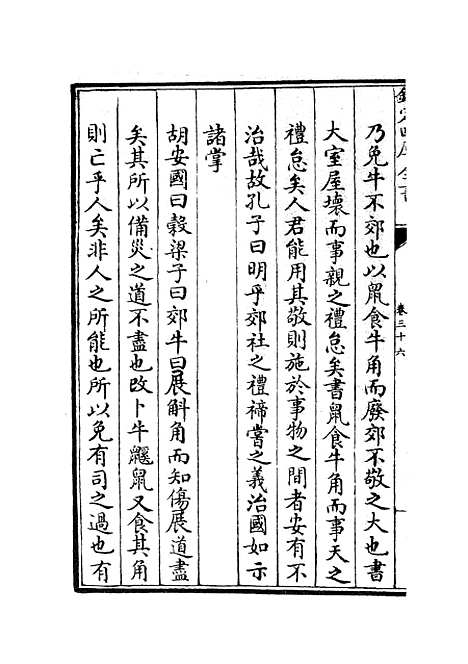 卷三十六
乃免牛不郊也以鼠食牛角而廢郊不敬之大也書
大室屋壞而事親之禮怠矣書鼠食牛角而事天之
禮怠矣人君能用其敬則施於事物之間者安有不
治哉故孔子曰明乎郊社之禮禘嘗之義治國如示
諸掌
胡安國曰穀梁子曰郊牛曰展斛角而知傷展道盡
矣其所以備災之道不盡也改卜牛鼷鼠又食其角
則亡乎人矣非人之所能也所以免有司之過也有